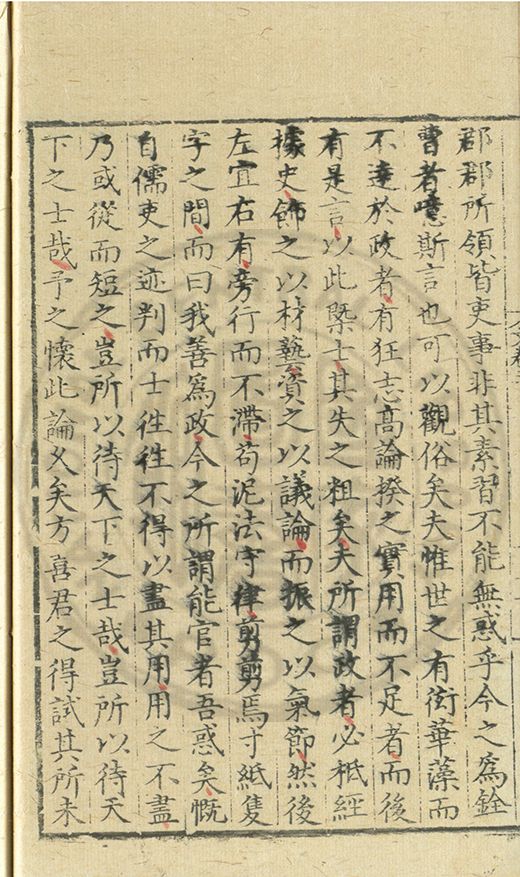 郡郡所領皆吏事非其素習不能無惑乎今之爲銓
曹者噫斯言也可以觀俗矣夫惟世之有衒華藻而
不達於政者有狂志高論揆之實用而不足者而後
有是言以此槩士其失之粗矣夫所謂政者必柢經
據史飾之以材藝資之以議論而振之以氣節然後
左宜右有旁行而不滯苟泥法守律剪剪焉寸紙隻
字之間而曰我善爲政今之所謂能官者吾惑矣慨
自儒吏之迹判而士徃徃不得以盡其用用之不盡
乃或從而短之豈所以待天下之士哉豈所以待天
下之士哉予之懷此論久矣方喜君之得試其所未